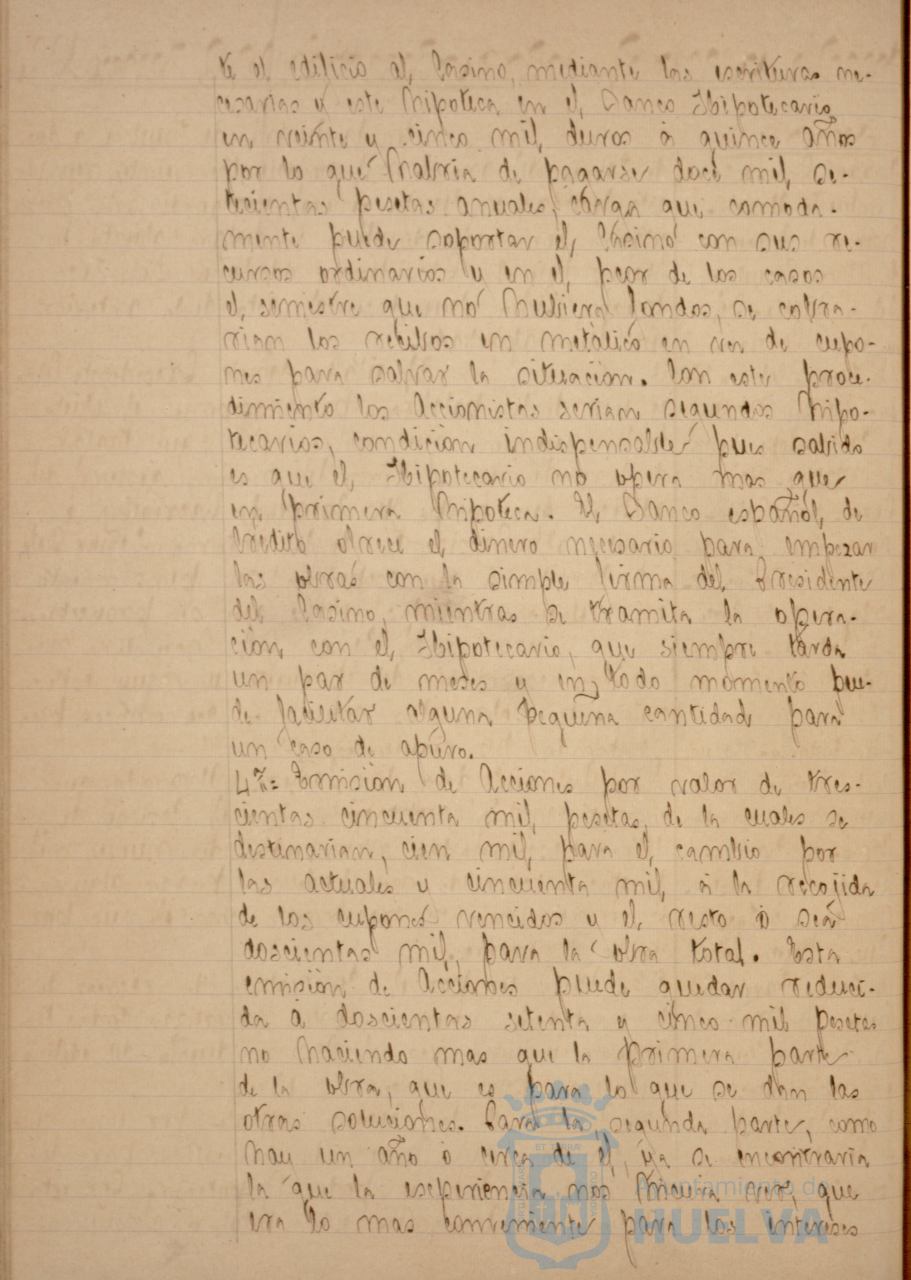 te el edificio al Casino, mediante las escrituras ne-
cesarias y este hipoteca en el, Banco Hipotecario
en veinte y cinco mil, duros á quince años
por lo que habria de pagarse doce mil, se-
tecientas pesetas anuales, carga que comoda-
mente puede soportar el, Casino con sus re-
cursos ordinarios y en el, peor de los casos
el, semestre que no hubiera fondos, se cobra-
rian los recibos en metalico en vez de cupo-
nes para salvar la situacion. Con este proce-
dimiento los Accionistas serian segundos hipo-
tecarios, condicion indispensable pues sabido
es que el, Hipotecario no opera mas que
en primera hipoteca. El, Banco español, de
Credito ofrece el, dinero necesario para empezar
las obras con la simple firma del Presidente
del Casino, mientras se tramita la opera-
cion con el, Hipotecario, que siempre tarda
un par de meses y en todo momento pue-
de facilitar alguna pequeña cantidad para
un caso de apuro.
4ª= Emision de Acciones por valor de tres-
cientas cincuenta mil, pesetas, de la cuales se
destinarian, cien mil, para el, cambio por
las actuales y cincuenta mil, á la recojida
de los cupones vencidos y el, resto ó sea
doscientas mil, para la obra total. Esta
emision de Acciones puede quedar reduci-
da á doscientas setenta y cinco mil pesetas
no haciendo mas que la primera parte
de la obra, que es para lo que se dan las
otras soluciones. Para la segunda parte, como
hay un año ó cerca de el, ya se encontraria
la que la esperiencia nos hiciera ver, que
era lo mas conveniente para los intereses
Ayuntamiento de
HUELVA